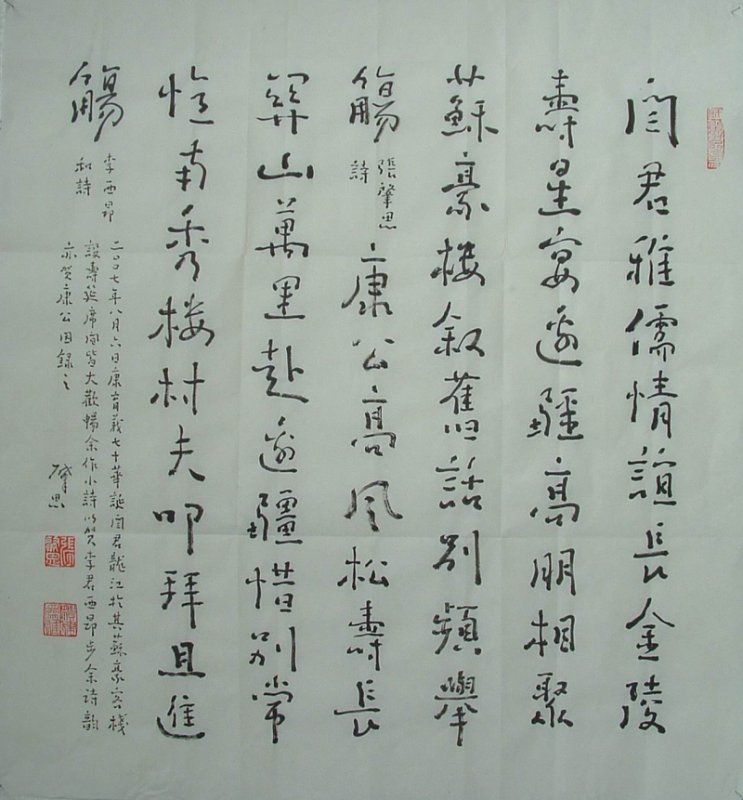 閆君雅儒情誼長金陵
壽星宴邊疆高朋相聚
蘇豪楼叙舊話别頻舉
觴
張肇思
詩
康公高風松壽長
關山萬里赴邊疆惜别常
憶南秀楼村夫叩拜且進
觴
李西昂
和詩
二〇〇七年八月六日康育義七十華誕閆君龍江於其蘇豪客棧
設壽筵席間皆大歡暢余作小詩以贺李君西昂步余诗韵
亦贺康公因録之
肇思